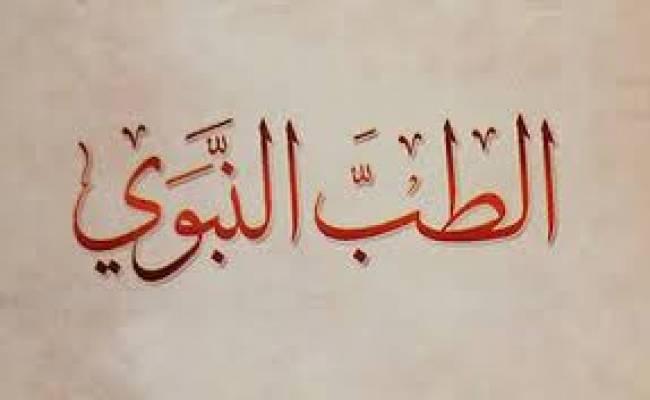 الطبَّ النَّبَوي